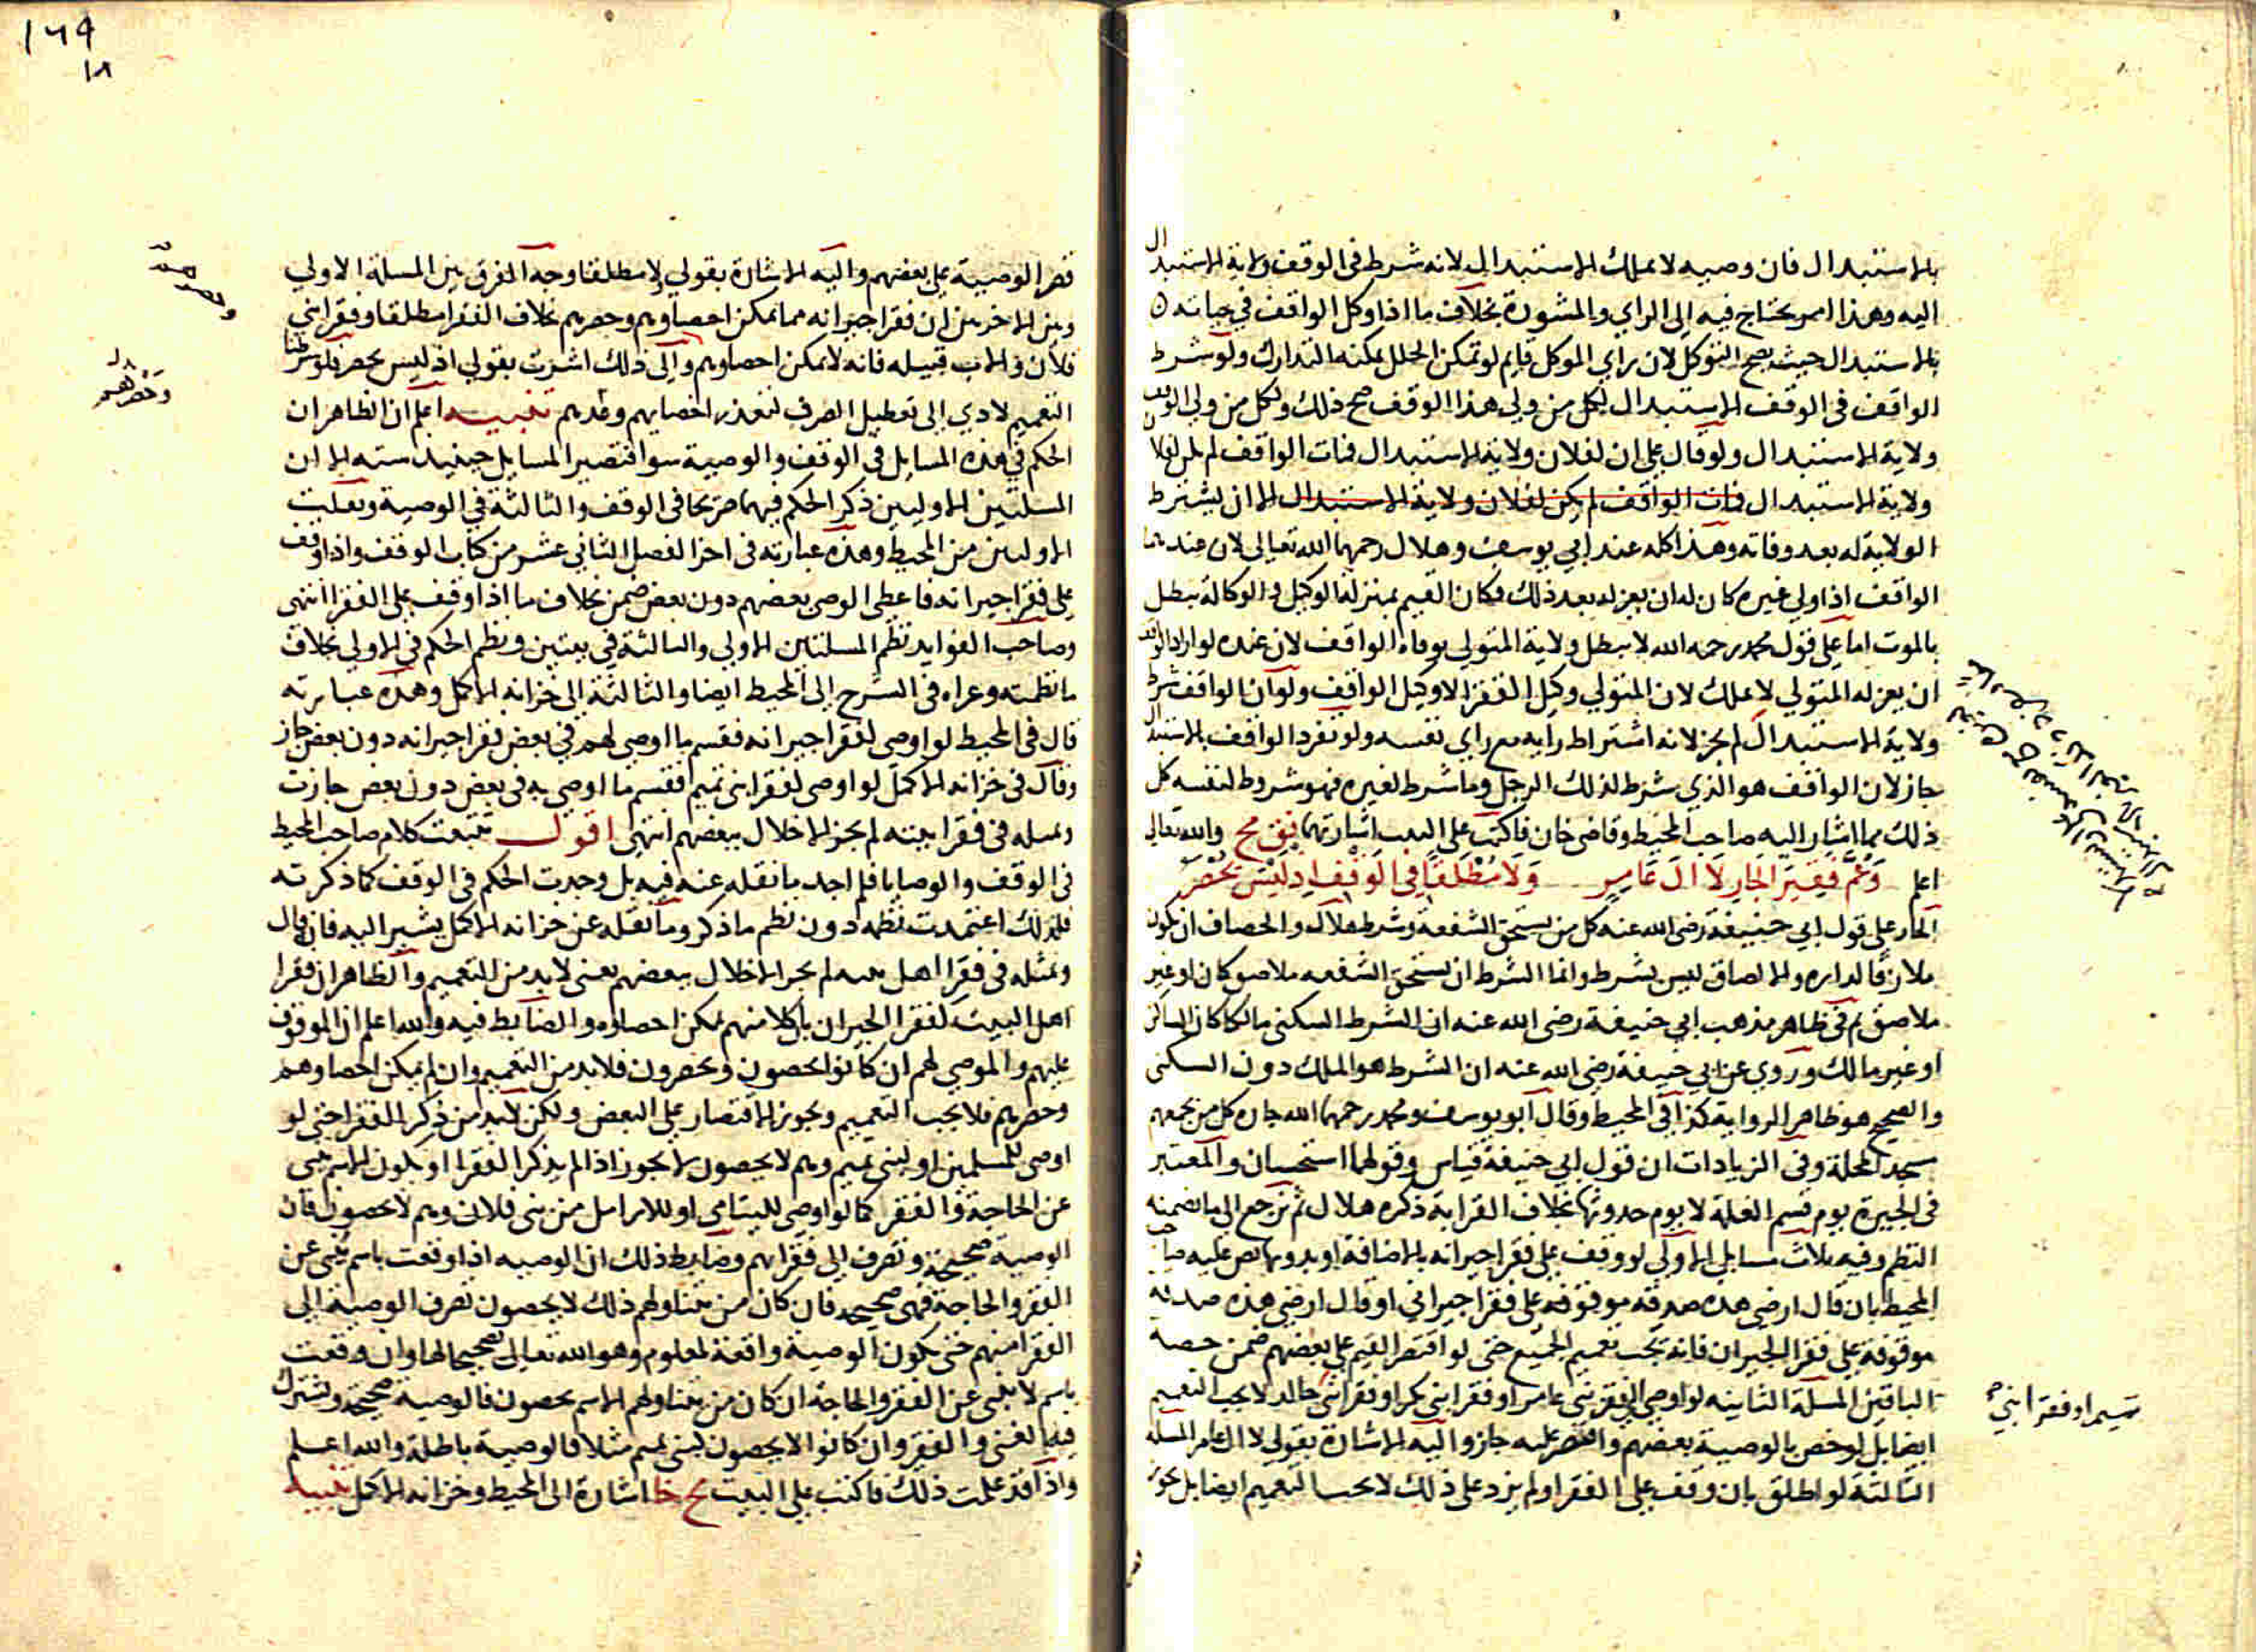 بالاستبدال فان وصيه لا يملك الاستبدال لانه شرط في الوقف ولاية الاستبدال
اليه وهذا امر يحتاج فيه الى الراي والمشورة بخلاف ما اذا وكل الواقف في حياته
بالاستبدال حيث يصح التوكل لان راي الموكل قايم لو تمكن الخلل يمكنه التدارك ولو شرط
الواقف في الوقف الاستبدال لكل من ولي هذا الوقف صح ذلك ولكل من ولي الوقف
ولاية الاستبدال ولو قال على ان لفلان ولاية الاستبدال فمات الواقف لم يكن لفلا
ولاية الاستبدال فمات الواقف لم يكن لفلان ولاية الاستبدال الا ان يشترط
الولاية له بعد وفاته وهذا كله عند ابي يوسف وهلال رحمهما الله تعالى لان عندهما
الواقف اذا ولي غيره كان له ان يعزله بعد ذلك فكان القيم بمنزلة الوكيل والوكالة تبطل
بالموت اما على قول محمد رحمه الله لا تبطل ولاية المتولي بوفاة الواقف لان عنده لو اراد الواقف
ان يعزله المتولي لا يملك لان المتولي وكيل الفقرا لا وكيل الواقف ولو ان الواقف شرط
ولاية الاستبدال لم يجز لانه اشتراط رايه مع راي نفسه ولو تفرد الواقف بالاستبدال
جاز لان الواقف هو الذي شرط لذلك الرجل وما شرط لغيره فهو شروط لنفسه كل
ذلك مما اشار اليه صاحب المحيط وقاضي خان فاكتب على البيت اشارتهما بق مح والله تعالى
اعلم وَعُمَّ فَقِيرَ الجَارِ لَا آلَ عَامِرٍ وَلَا مُطْلَقًا فِي الوَقْفِ اِذ لَيْسَ يُحْصَرُ
الجار على قول ابي حنيفة رضي الله عنه كل من يستحق الشفعة وشرط هلال والخصاف ان يكون
ملازقا لداره والالصاق ليس بشرط وانما الشرط ان يستحق الشفعه ملاصق كان او غير
ملاصق ثم في ظاهر مذهب ابي حنيفة رضي الله عنه ان الشرط السكنى مالكا كان الساكن
او غير مالك وروي عن ابي حنيفة رضي الله عنه ان الشرط هو الملك دون السكنى
والصحيح هو ظاهر الرواية كذا في المحيط وقال ابو يوسف ومحمد رحمهما الله جاره كل من يجمعهم
مسجد المحلة وفي الزيادات ان قول ابي حنيفة قياس وقولهما استحسان والمعتبر
في الجيرة يوم قسم الغلة لا يوم حدوثها بخلاف القرابة ذكره هلال ثم نرجع الى ما تضمنه
النظم وفيه ثلاث مسايل الاولى لو وقف على فقرا جيرانه بالاضافة او بدونها نص عليه صاحب
المحيط بان قال ارضي هذه صدقه موقوفه على فقرا جيراني او قال ارضي هذه صدقه
موقوفة على فقرا الجيران فانه يجب تعميم الجميع حتى لو اقتصر القيم على بعضهم ضمن حصة
الباقين المسلة الثانيه لو اوصى لفقرا بني عامر او فقرا بني بكر او فقرا بني خالد لا يجب التعميم
ايضا بل لو خص بالوصية بعضهم واقتصر عليه جاز واليه الاشارة بقولي لا آل عامر المسلة
الثالثة لو اطلق بان وقف على الفقرا ولم يزد على ذلك لا يجب التعميم ايضا بل يجوز
تميم او فقرا بني
١٦٩
١٨
قصر الوصية على بعضهم واليه الاشارة بقولي ولا مطلقا وجه الفرق بين المسلة الاولى
وبين الاخرين ان فقرا جيرانه مما يمكن احصاوهم وحصرهم بخلاف الفقرا مطلقا وفقرا بني
فلان والاب قبيله فانه لا يمكن احصاوهم والى ذلك اشرت بقولي اذ ليس يحصر فلو شرطنا
التعميم لادي الى تعطيل الصرف لتعذر احصايهم وعدهم تنبيه اعلم ان الظاهر ان
الحكم في هذه المسايل في الوقف والوصية سوا فتصير المسايل حينيد سته الا ان
المسلتين الاوليين ذكر الحكم فيهما صريحا في الوقف والثالثة في الوصية ونقلت
الاوليين من المحيط وهذه عبارته في اخر الفصل الثاني عشر من كتاب الوقف واذا وقف
على فقرا جيرانه فاعطى الوصي بعضهم دون بعض ضمن بخلاف ما اذا وقف على الفقرا انتهى
وصاحب الفوايد نظم المسلتين الاولى والثالثة في بيتين ونظم الحكم في الاولى بخلاف
ما نظمته وعزاه في الشرح الى المحيط ايضا والثالثة الى خزانه الاكمل وهذه عبارته
قال في المحيط لو اوصى لفقرا جيرانه فقسم ما اوصى لهم في بعض فقرا جيرانه دون بعض جاز
وقال في خزانه الاكمل لو اوصى لفقرا بني تميم فقسم ما اوصى به في بعض دون بعض جازت
ومثله في فقرا بيته لم يجز الاخلال ببعضهم انتهى اقول تتبعت كلام صاحب المحيط
في الوقف والوصايا فلم اجد ما نقله عنه فيه بل وجدت الحكم في الوقف كما ذكرته
فلذلك اعتمدت نظمه دون نظم ما ذكر وما نقله عن خزانه الاكمل يشير اليه فانه قال
ومثله في فقرا اهل بيته لم يجز الاخلال ببعضهم يعني لابد من التعميم والظاهر ان فقرا
اهل البيت كفقرا الجيران بان كلا منهم يمكن احصاوه والضابط فيه والله اعلم ان الموقوف
عليهم والموصى لهم ان كانوا يحصون ويحصرون فلابد من التعميم وان لم يمكن احصاوهم
وحصرهم فلا يجب التعميم ويجوز الاقتصار على البعض ولكن لابد من ذكر الفقرا حتى لو
اوصى للمسلمين او لبني تميم وهم لا يحصون لا يجوز اذا لم يذكر الفقرا او يكون الاسم ينبي
عن الحاجة والفقر كما لو اوصى لليتامى او للارامل من بني فلان وهم لا يحصون فان
الوصية صحيحة وتصرف الى فقرايهم وضابط ذلك ان الوصيه اذا وقعت باسم ينبي عن
الفقر والحاجة فهي صحيحه فان كان من يتناولهم ذلك لا يحصون تصرف الوصية الى
الفقرا منهم حتى يكون الوصية واقعة لمعلوم وهو الله تعالى تصحيحا لها وان وقعت
باسم لا ينبي عن الفقر والحاجة ان كان من يتناولهم الاسم يحصون فالوصية صحيحة ويشترك
فيها الغني والفقير وان كانوا لا يحصون كبني تميم مثلا فالوصية باطلة والله اعلم
واذا قد علمت ذلك فاكتب على البيت مح خا اشارة الى المحيط وخزانه الاكمل تنبيه
وحصرهم